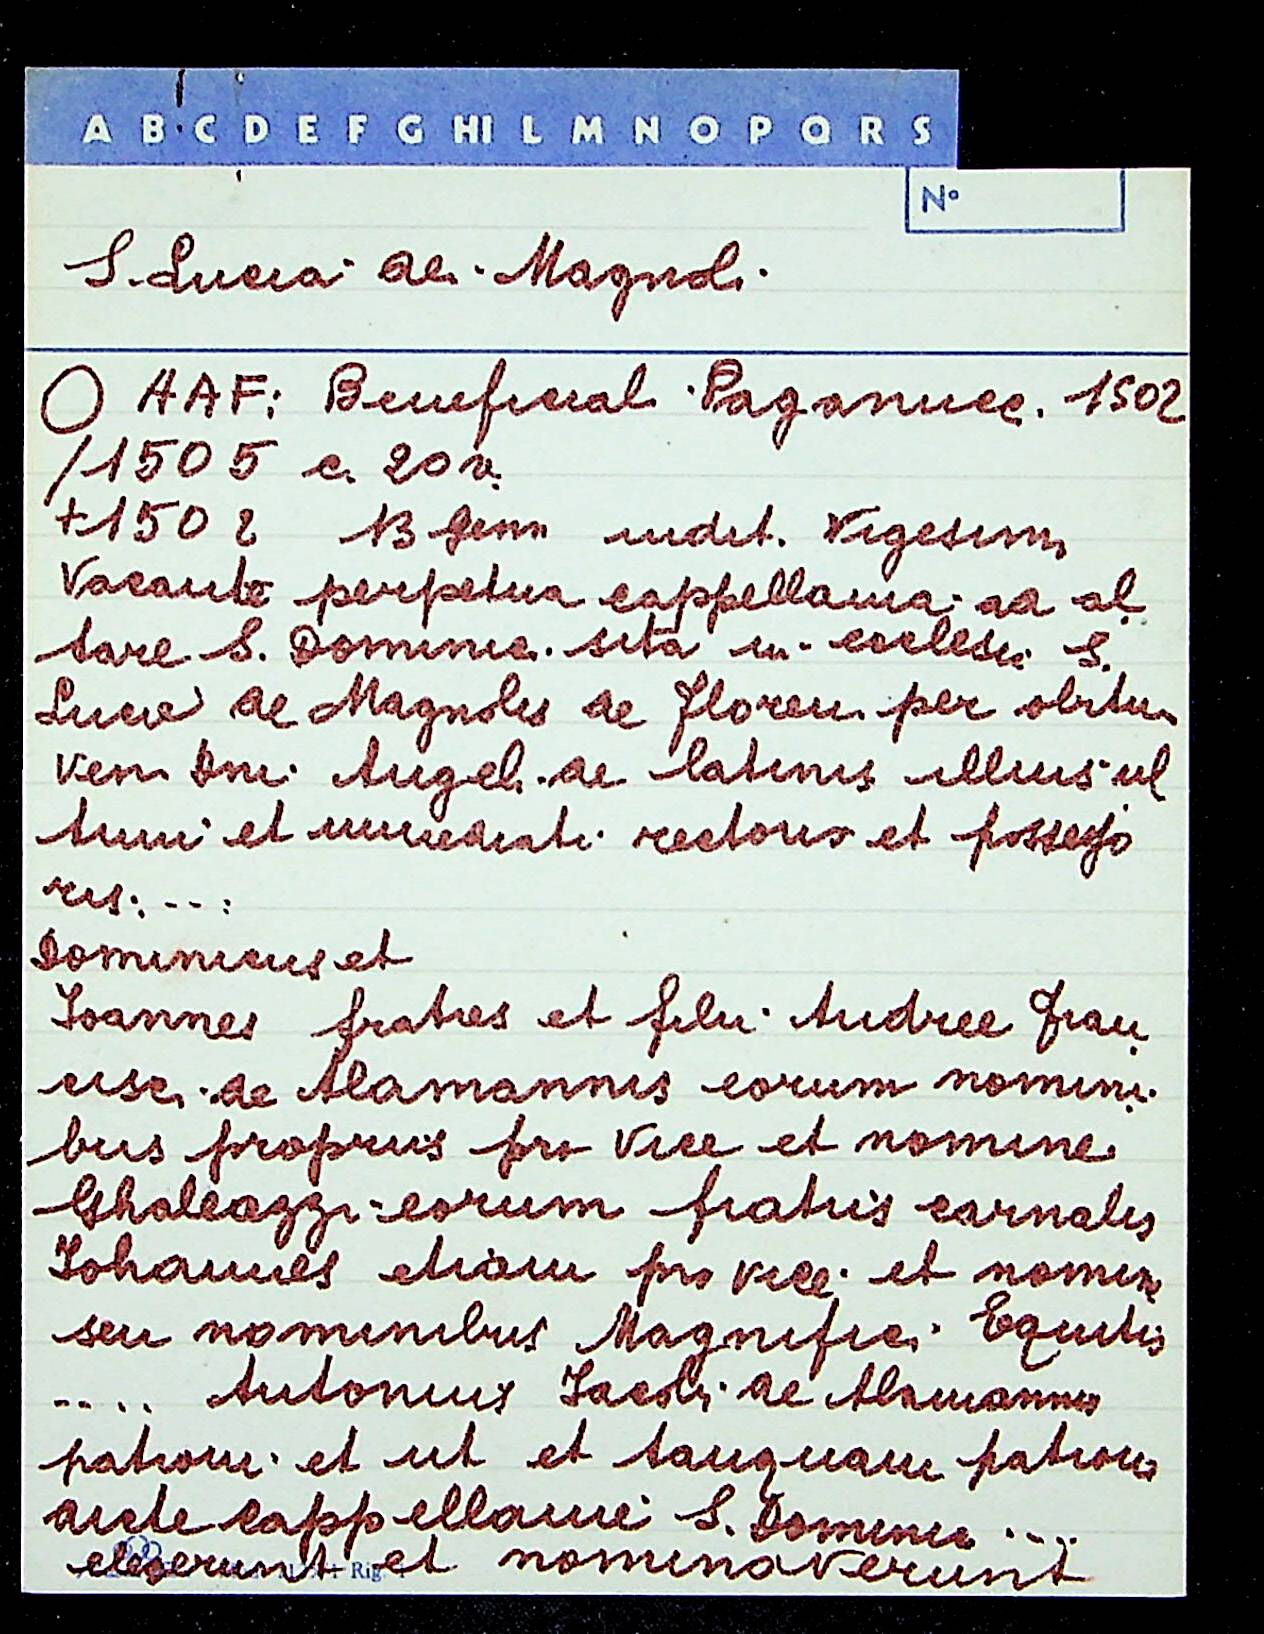 A B C D E F G HI L M N O P Q R S
N°
S. Lucia de Magnoli
O AAF: Beneficial Paganucc. 1502
/1505 c. 20 v.
+1502 13 Genn indit. Vigesima
Vacante perpetua cappellania ad al
tare S. Dominici sita in ecclesia S.
Lucie de Magnolis de Floren. per obitum
ven. Dni. Angeli de latinis illius ul
timi et immediati rectoris et possesso
ris. --:
Dominicus et
Ioannes fratres et filii Andree Fran
cisci de Alamannis eorum nomini
bus propriis pro vice et nomine
Ghaleazzi eorum fratris carnalis
Iohannes etiam pro vice et nomine
seu nominibus Magnifici Equitis
.... Antonius Iacobi de Alamannis
patroni et uti et tanquam patroni
dicte cappellanie S. Dominici ....
elegerunt et nominaverunt